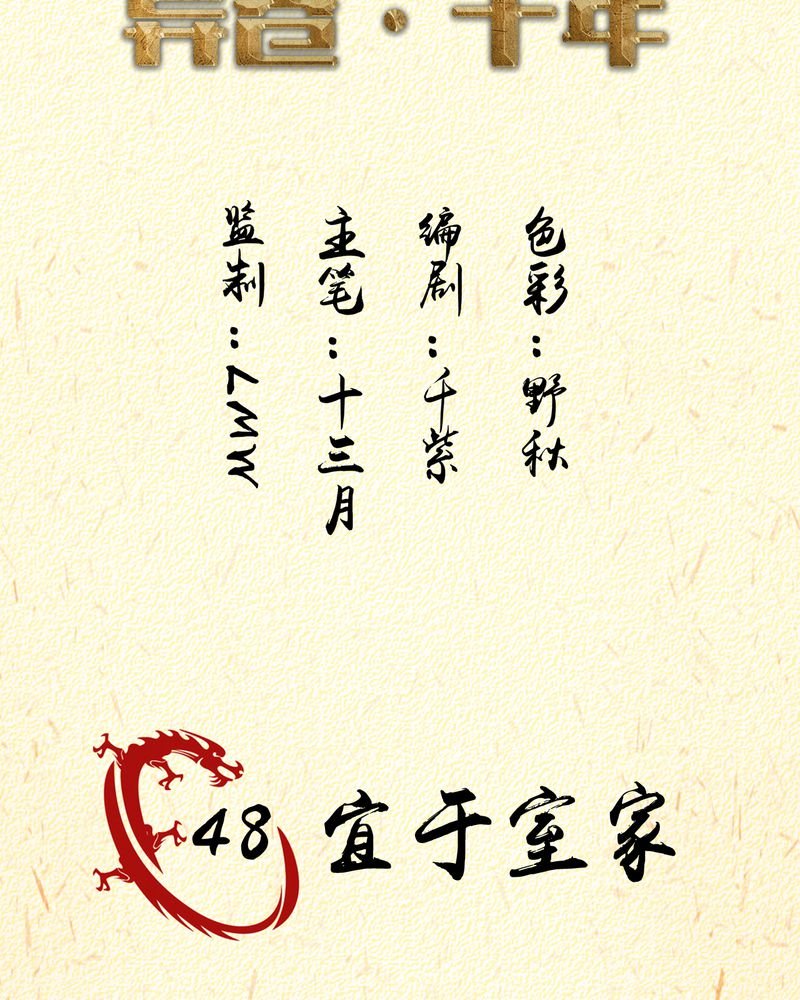 色彩：野秋
编剧：千紫
主笔：十三月
监制：MW7
48 宜于室家